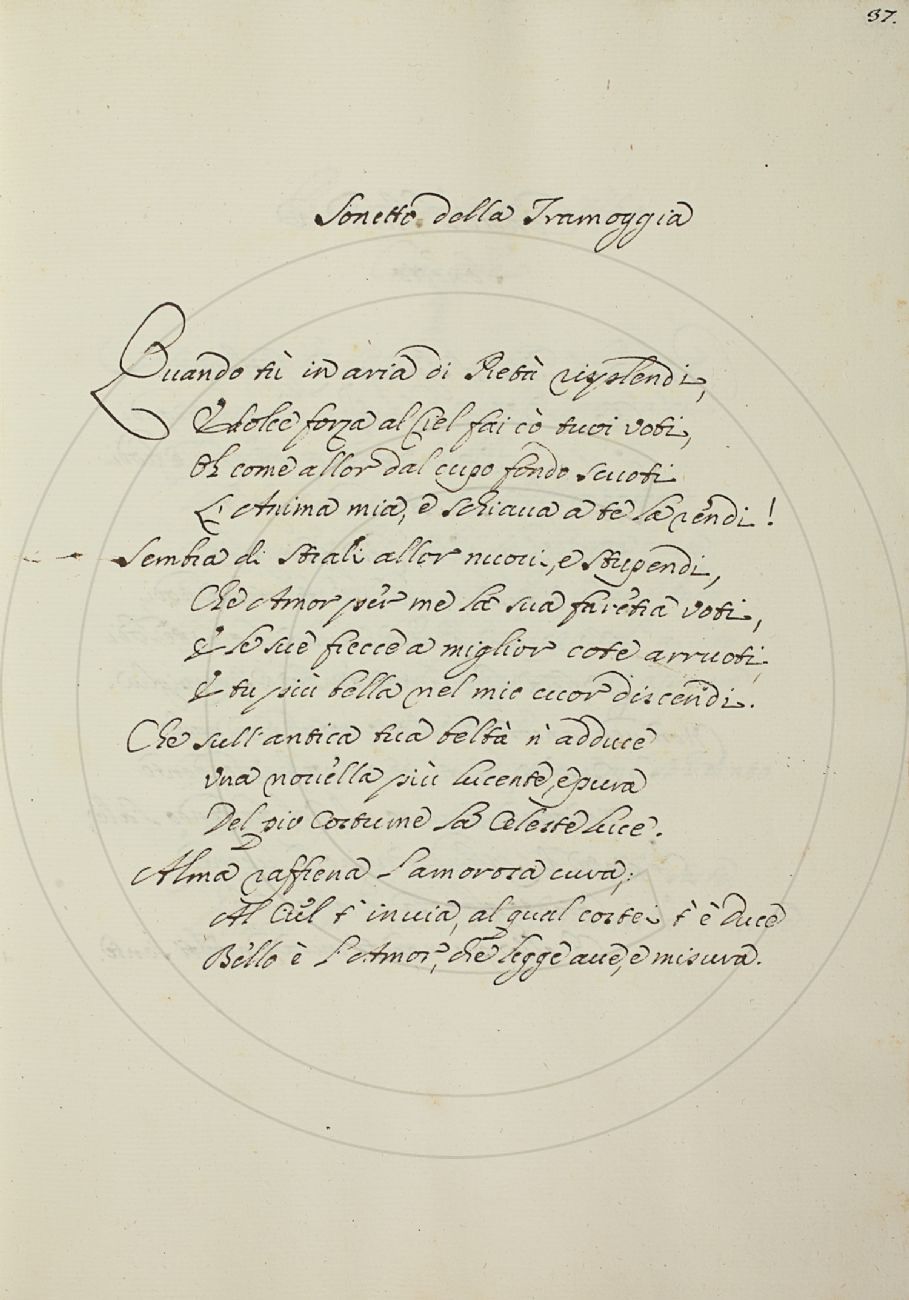 37.
Sonetto della Tramoggia
Quando tù in aria di Pietà risplendi,
E dolce forza al Ciel fai cò tuoi voti,
Oh come allor dal cupo fondo scuoti
L'Anima mia, e schiava a te la rendi!
Sembra di strali allor nuovi, e stupendi,
Che Amor per me la sua faretra voti,
E le sue fiecce a miglior cote arruoti,
E tu più bella nel mio cuor discendi.
Che sull'antica tua beltà n'adduce
Una novella più lucente, e pura
Del pio Costume la Celeste luce.
Alma raffiena l'amorosa cura,
Al Ciel t'invia, al qual costei t'è Duce
Bello è l'Amor, che legge ave, e misura.